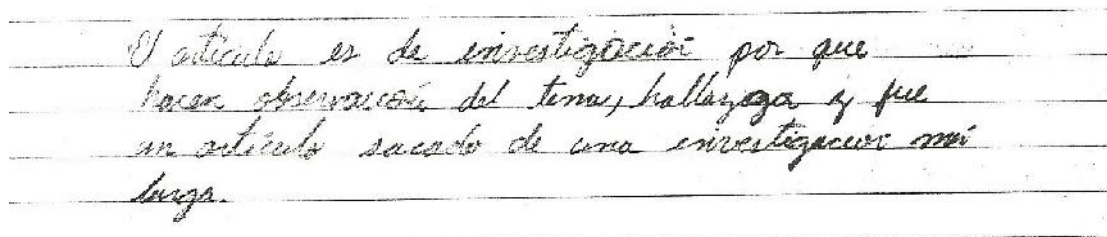 El artículo es de investigación por que
hacen observación del tema, hallazgo y fue
un artículo sacado de una investigación más
larga.